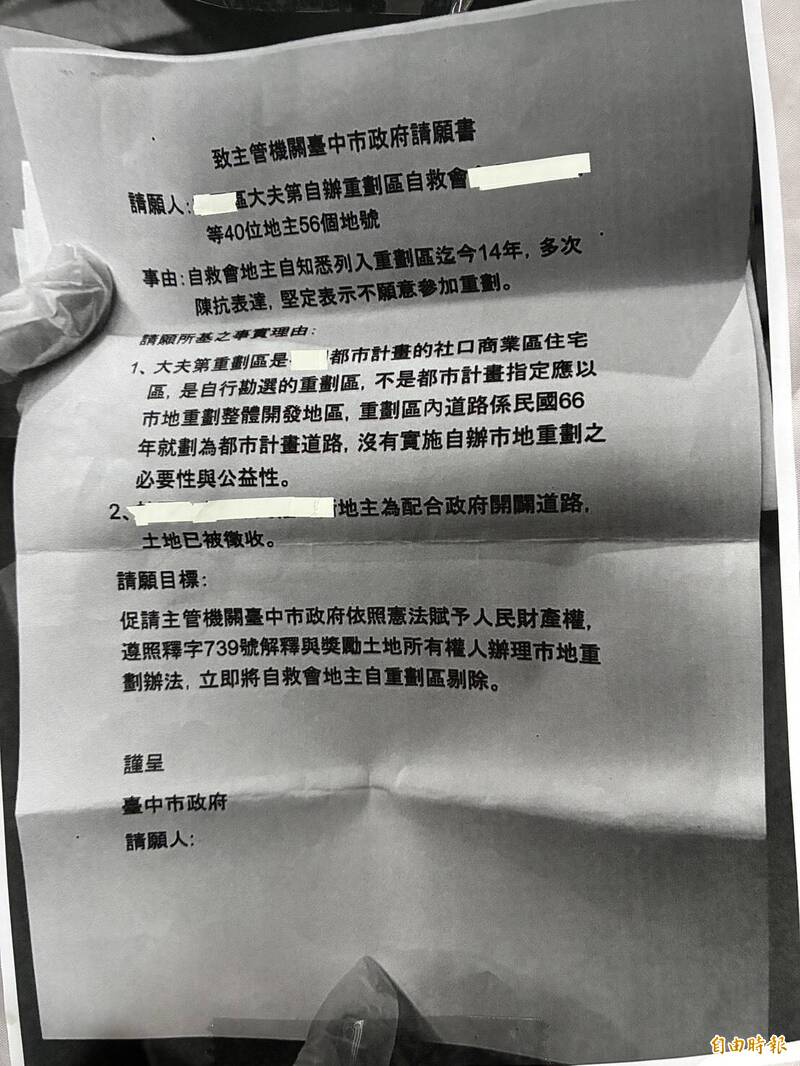 致主管機關臺中市政府請願書
請願人:區大夫第自辦重劃區自救會
等40位地主56個地號
事由:自救會地主自知悉列入重劃區迄今14年, 多次
陳抗表達, 堅定表示不願意參加重劃。
請願所基之事實理由:
1、大夫第重劃區是都市計畫的社口商業區住宅
區, 是自行勘選的重劃區, 不是都市計畫指定應以
市地重劃整體開發地區, 重劃區內道路係民國66
年就劃為都市計畫道路, 沒有實施自辦市地重劃之
必要性與公益性。
2、地主為配合政府開闢道路,
土地已被徵收。
請願目標:
促請主管機關臺中市政府依照憲法賦予人民財產權,
遵照釋字739號解釋與獎勵土地所有權人辦理市地重
劃辦法, 立即將自救會地主自重劃區剔除。
謹呈
臺中市政府
請願人:
自由時報